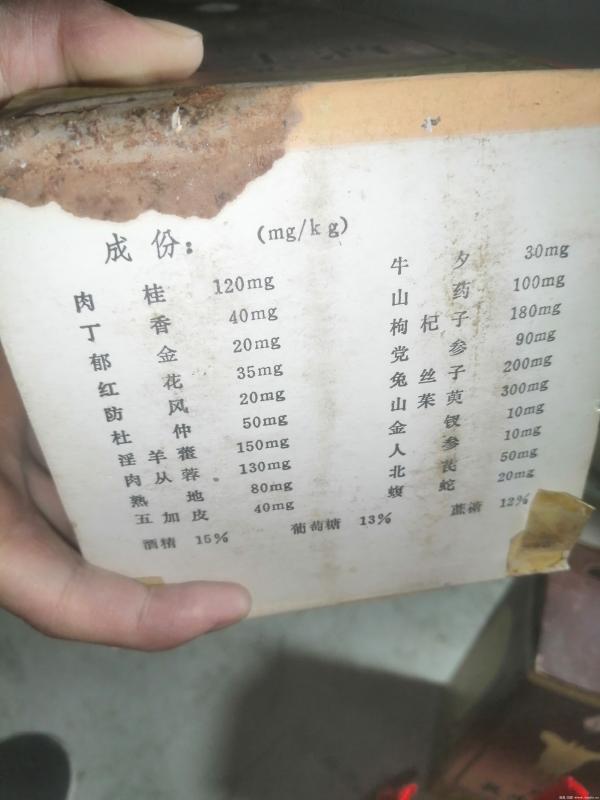 成份： (mg/kg)
肉桂 120mg
丁香 40mg
郁金 20mg
红花 35mg
防风 20mg
杜仲 50mg
淫羊藿 150mg
肉从蓉 130mg
熟地 80mg
五加皮 40mg
牛夕 30mg
山药 100mg
枸杞子 180mg
党参 90mg
兔丝子 200mg
山茱萸 300mg
金钗 10mg
人参 10mg
北芪 50mg
蝮蛇 20mg
酒精 15% 葡萄糖 13% 蔗糖 12%